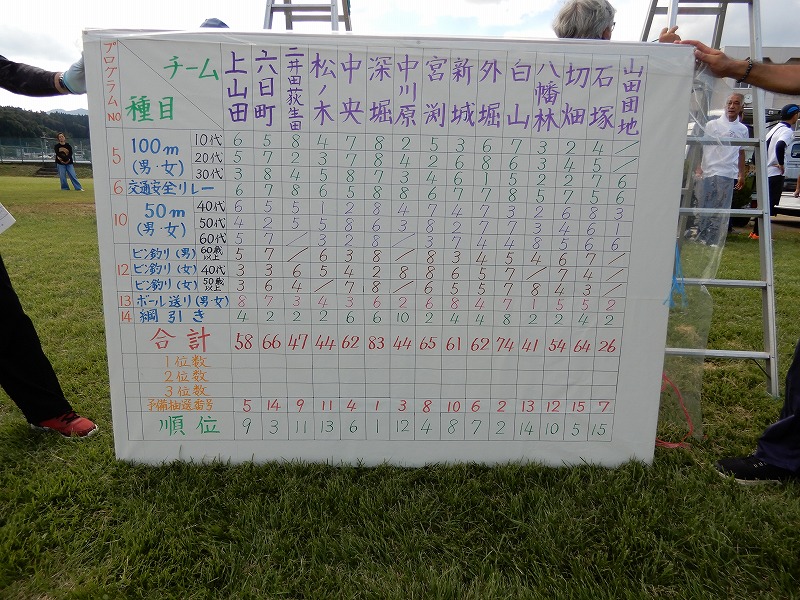 プログラムNO 種目 チーム 上山田 六日町 二井田荻生田 松ノ木 中央 深堀 中川原 宮渕 新城 外堀 白山 八幡林 切畑 石塚 山田団地
5 100m (男・女) 10代 6 5 8 4 7 8 2 5 3 6 7 3 2 4 /
20代 5 7 2 3 7 8 4 2 6 8 6 3 4 5 /
30代 3 8 4 5 8 7 3 4 6 1 5 2 2 7 6
6 交通安全リレー 6 7 8 6 5 8 8 6 7 7 8 5 7 5 6
10 50m (男・女) 40代 6 5 5 1 2 8 4 7 4 7 3 2 6 8 3
50代 4 2 5 5 8 6 3 8 2 7 7 3 4 6 1
60代 5 7 / 3 2 8 / 3 7 4 4 8 5 6 6
12 ビン釣り(男) 60歳以上 5 7 / 6 3 8 / 8 3 4 5 4 6 7 /
ビン釣り(女) 40代 3 3 6 5 4 2 8 8 6 5 7 / 7 4 /
ビン釣り(女) 50歳以上 3 6 4 / 7 8 / 6 5 5 7 8 4 3 /
13 ボール送り(男・女) 8 7 3 4 3 6 2 6 8 4 7 1 5 5 2
14 綱引き 4 2 2 2 6 6 10 2 4 4 8 2 2 4 2
合計 58 66 47 44 62 83 44 65 61 62 74 41 54 64 26
1位数
2位数
3位数
予備抽選番号 5 14 9 11 4 1 3 8 10 6 2 13 12 15 7
順位 9 3 11 13 6 1 12 4 8 7 2 14 10 5 15